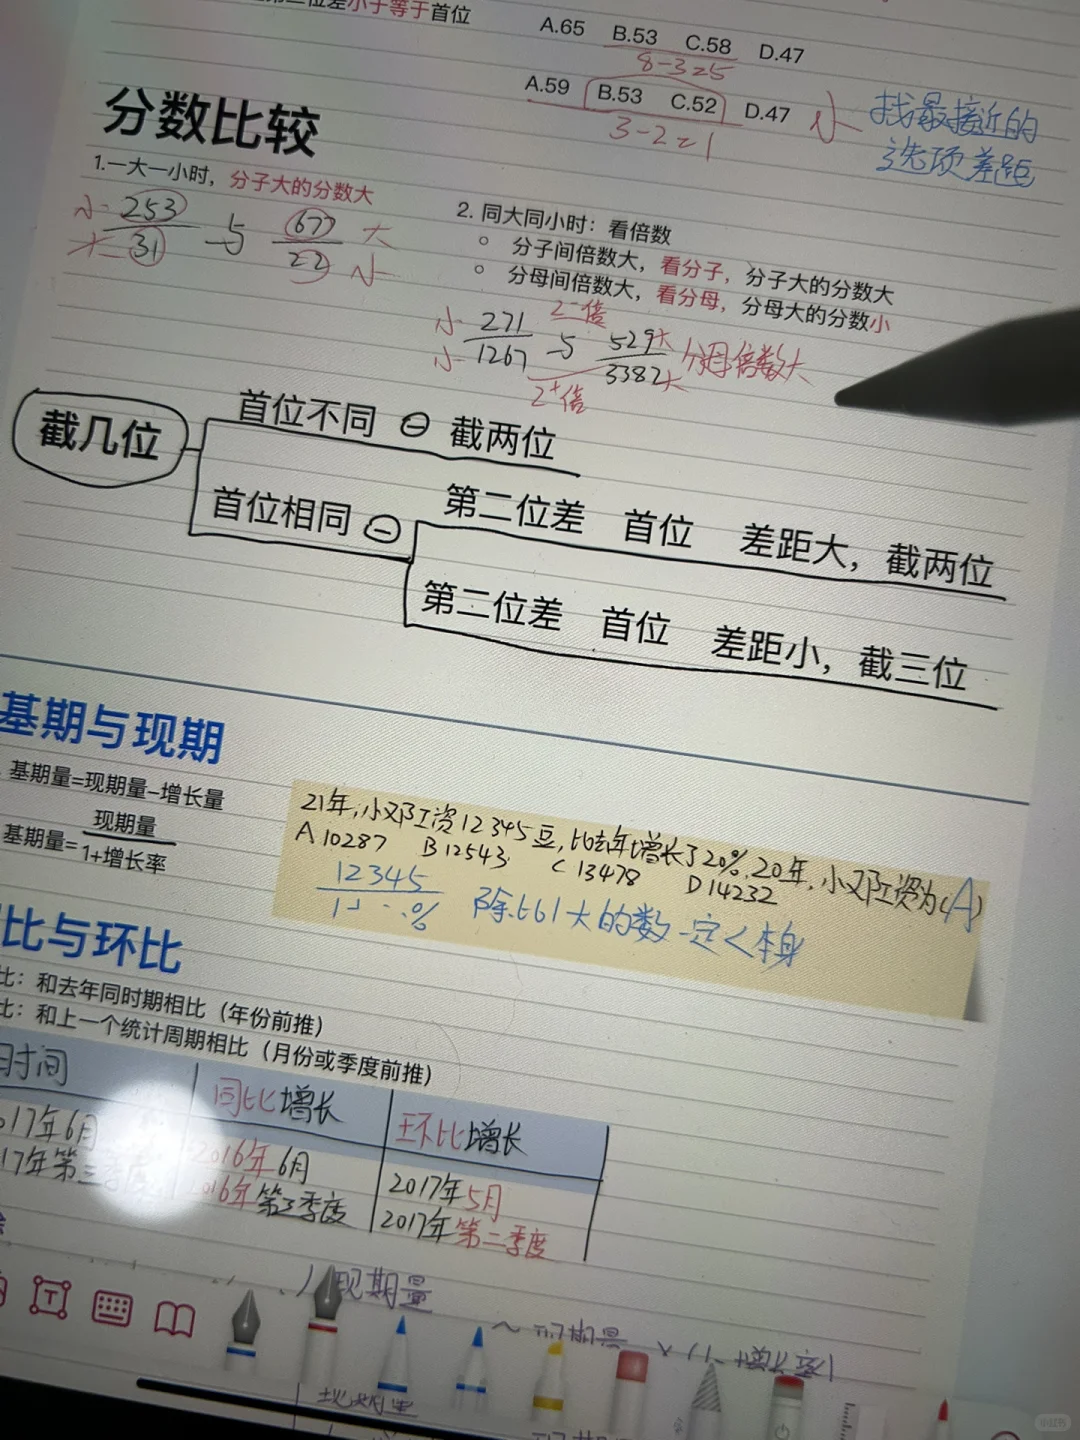 第二位差小于等于首位
A.65 B.53 C.58 D.47
8-3=5
A.59 B.53 C.52 D.47
3-2=1
小 找最接近的
选项差距
分数比较
1.一大一小时，分子大的分数大
小 253 与 677 大
大 31 22 小
2. 同大同小时：看倍数
分子间倍数大，看分子，分子大的分数大
分母间倍数大，看分母，分母大的分数小
2⁻倍
小 271 与 529 大 分母倍数大
小 1267 3382 大
2⁺倍
截几位
首位不同 截两位
首位相同
第二位差 首位 差距大，截两位
第二位差 首位 差距小，截三位
基期与现期
基期量=现期量-增长量
基期量=现期量
1+增长率
21年，小邓工资12345豆，比去年增长了20%，20年，小邓工资为(A)
A 10287 B 12543 C 13478 D 14232
12345
除比1大的数一定<本身
比与环比
比：和去年同时期相比（年份前推）
比：和上一个统计周期相比（月份或季度前推）
时间 同比增长 环比增长
2017年6月 2016年6月 2017年5月
17年第三季度 2016年第3季度 2017年第二季度
现期量
现期量 × (1+增长率)